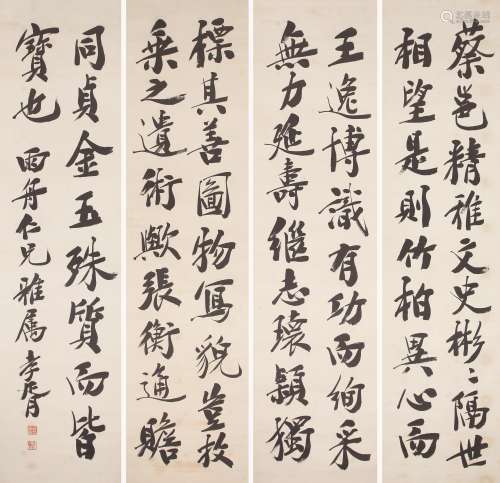 蔡邕精雅文史彬〻隔世
相望是則竹柏異心而
王逸博識有功而絢采
無力延壽繼志瓌穎獨
標其善圖物寫貌豈枚
乘之遺術歟張衡通贍
同貞金玉殊質而皆
寶也 雨舟仁兄雅属 孝胥